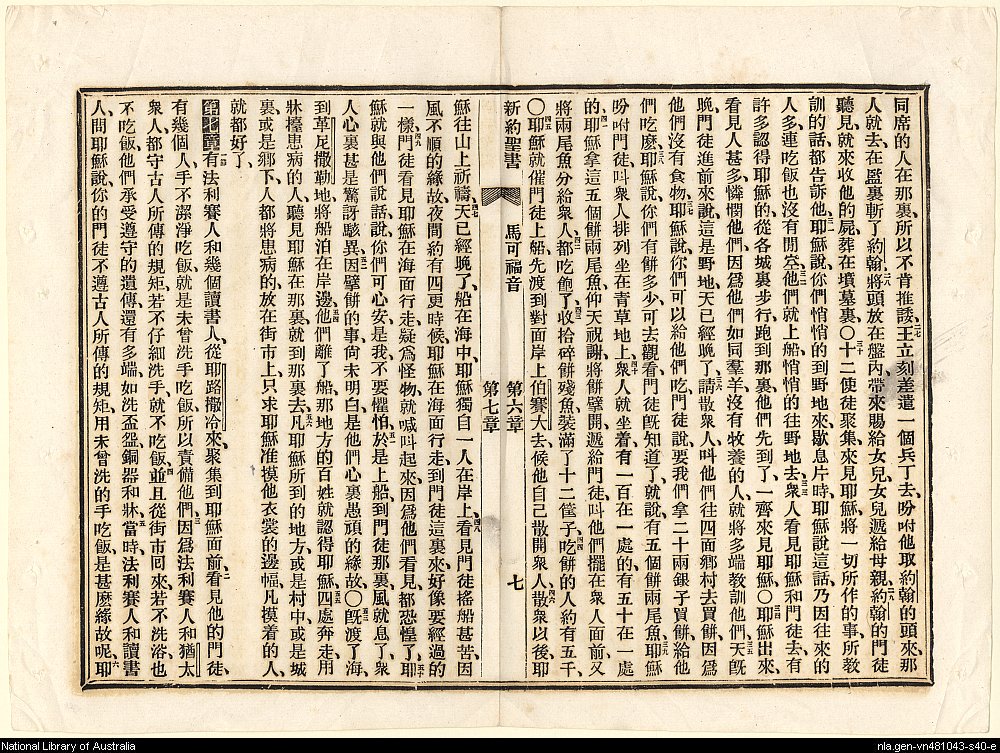 同席的人在那裏所以不肯推諉、二七王立刻差遣一個兵丁去、吩咐他取約翰的頭來那
人就去在監裏斬了約翰、二八將頭放在盤內、帶來賜給女兒女兒遞給母親、二九約翰的門徒
聽見、就來收他的屍葬在墳墓裏、○三十十二使徒聚集來見耶穌將一切所作的事、所教
訓的話、都告訴他、三一耶穌說你們悄悄的到野地來歇息片時、耶穌說這話乃因往來的
人多連吃飯也沒有閒空、三二他們就上船悄悄的往野地去、三三衆人看見耶穌和門徒去有
許多認得耶穌的從各城裏步行跑到那裏他們先到了一齊來見耶穌、○三四耶穌出來、
看見人甚多憐憫他們、因爲他們如同羣羊、沒有牧養的人、就將多端教訓他們、三五天旣
晚、門徒進前來說、這是野地天已經晚了、三六請散衆人叫他們往四面鄉村去買餅、因爲
他們沒有食物、三七耶穌說、你們可以給他們吃、門徒說、要我們拿二十兩銀子買餅給他
們吃麼、三八耶穌說、你們有餅多少、可去觀看門徒旣知道了、就說有五個餅兩尾魚、三九耶穌
吩咐門徒、叫衆人排列坐在青草地上、四十衆人就坐着有一百在一處的、有五十在一處
的、四一耶穌拿這五個餅兩尾魚仰天祝謝將餅擘開遞給門徒、叫他們擺在衆人面前又
將兩尾魚分給衆人、四二都吃飽了、四三收拾碎餅殘魚裝滿了十二筐子、四四吃餅的人約有五千、
○四五耶穌就催門徒上船、先渡到對面岸上伯賽大去、候他自己散開衆人、四六散衆以後耶
新約聖書 馬可福音 第六章 第七章 七
穌往山上祈禱、四七天已經晚了、船在海中、耶穌獨自一人在岸上、四八看見門徒搖船甚苦、因
風不順的緣故、夜間約有四更時候耶穌在海面行走到門徒這裏來、好像要經過的
一樣、四九門徒看見耶穌在海面行走疑爲怪物、就喊叫起來、五十因爲他們看見、都恐惶了、耶
穌就與他們說話、說、你們可心安是我、不要懼怕、五一於是上船到門徒那裏、風就息了、衆
人心裏甚是驚訝駭異、五二因擘餅的事尙未明白、是他們心裏愚頑的緣故、○五三旣渡了海
到革尼撒勒地、將船泊在岸邊、五四他們離了船、那地方的百姓就認得耶穌、五五四處奔走用
牀檯患病的人、聽見耶穌在那裏、就到那裏去、五六凡耶穌所到的地方、或是村中或是城
裏、或是鄉下人都將患病的放在街市上、只求耶穌准摸他衣裳的邊幅凡摸着的人、
就都好了、
第七章 一有法利賽人和幾個讀書人、從耶路撒冷來、聚集到耶穌面前、二看見他的門徒、
有幾個人、手不潔淨吃飯、就是未曾洗手吃飯、所以責備他們、三因爲法利賽人和猶太
衆人、都守古人所傳的規矩、若不仔細洗手、就不吃飯、四並且從街市囘來、若不洗浴也
不吃飯、他們承受遵守的遺傳還有多端、如洗盃盌銅器和牀、五當時、法利賽人和讀書
人、問耶穌說、你的門徒不遵古人所傳的規矩、用未曾洗的手吃飯是甚麼緣故呢、六耶
National Library of Australia
nla.gen-vn481043-s40-e